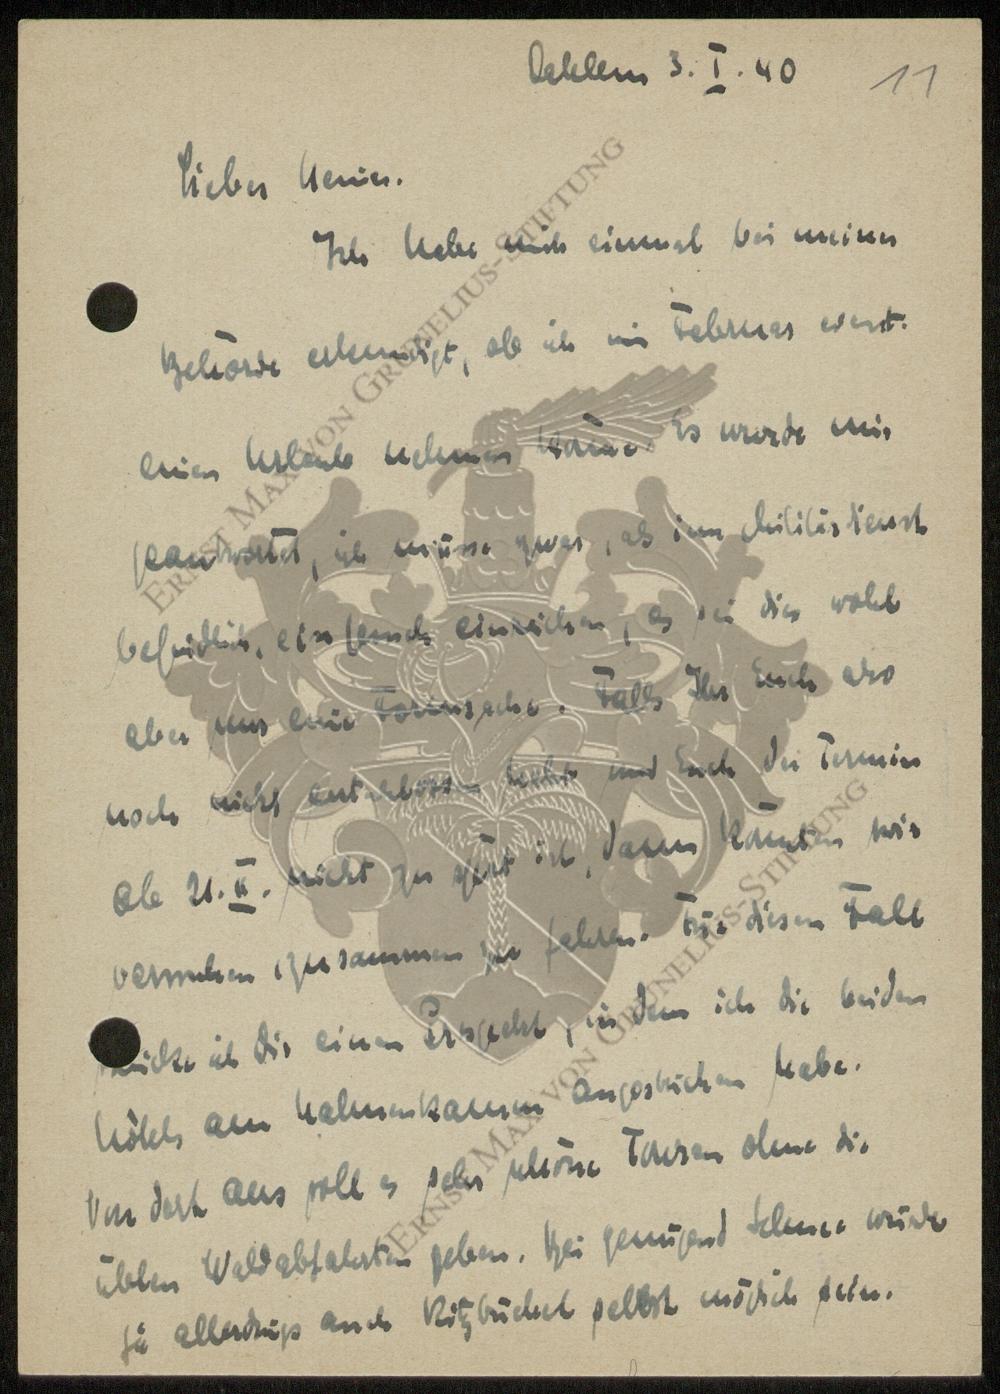 Dahlem 3. I. 40
11
Lieber Heiner.
Ich habe mich einmal bei meiner
Behörde erkundigt, ob ich im Februar event.
einen Urlaub nehmen könne. Es wurde mir
geantwortet, ich müsse zwar, als im Militärdienst
befindlich, ein Gesuch einreichen, es sei dies wohl
aber nur eine Formsache. Falls Ihr Euch also
noch nicht entschlossen habt und Euch der Termin
ab 21. II. nicht zu spät ist, dann könnten wir
versuchen zusammen zu fahren. Für diesen Fall
schicke ich Dir einen Prospekt, in dem ich die beiden
Hotels am Hahnenkamm angestrichen habe.
Von dort aus soll es sehr schöne Touren ohne die
üblen Waldabfahrten geben. Bei genügend Schnee würde
ja allerdings auch Kitzbüchel selbst möglich sein.
ERNST MAX VON GRUNELIUS-STIFTUNG
ERNST MAX VON GRUNELIUS-STIFTUNG